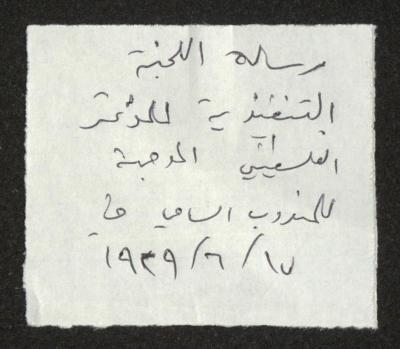 رسالة اللجنة
التنفيذية للمؤتمر
الفلسطيني الموجهة
للمندوب السامي في
١٩٢٩/٦/١٧